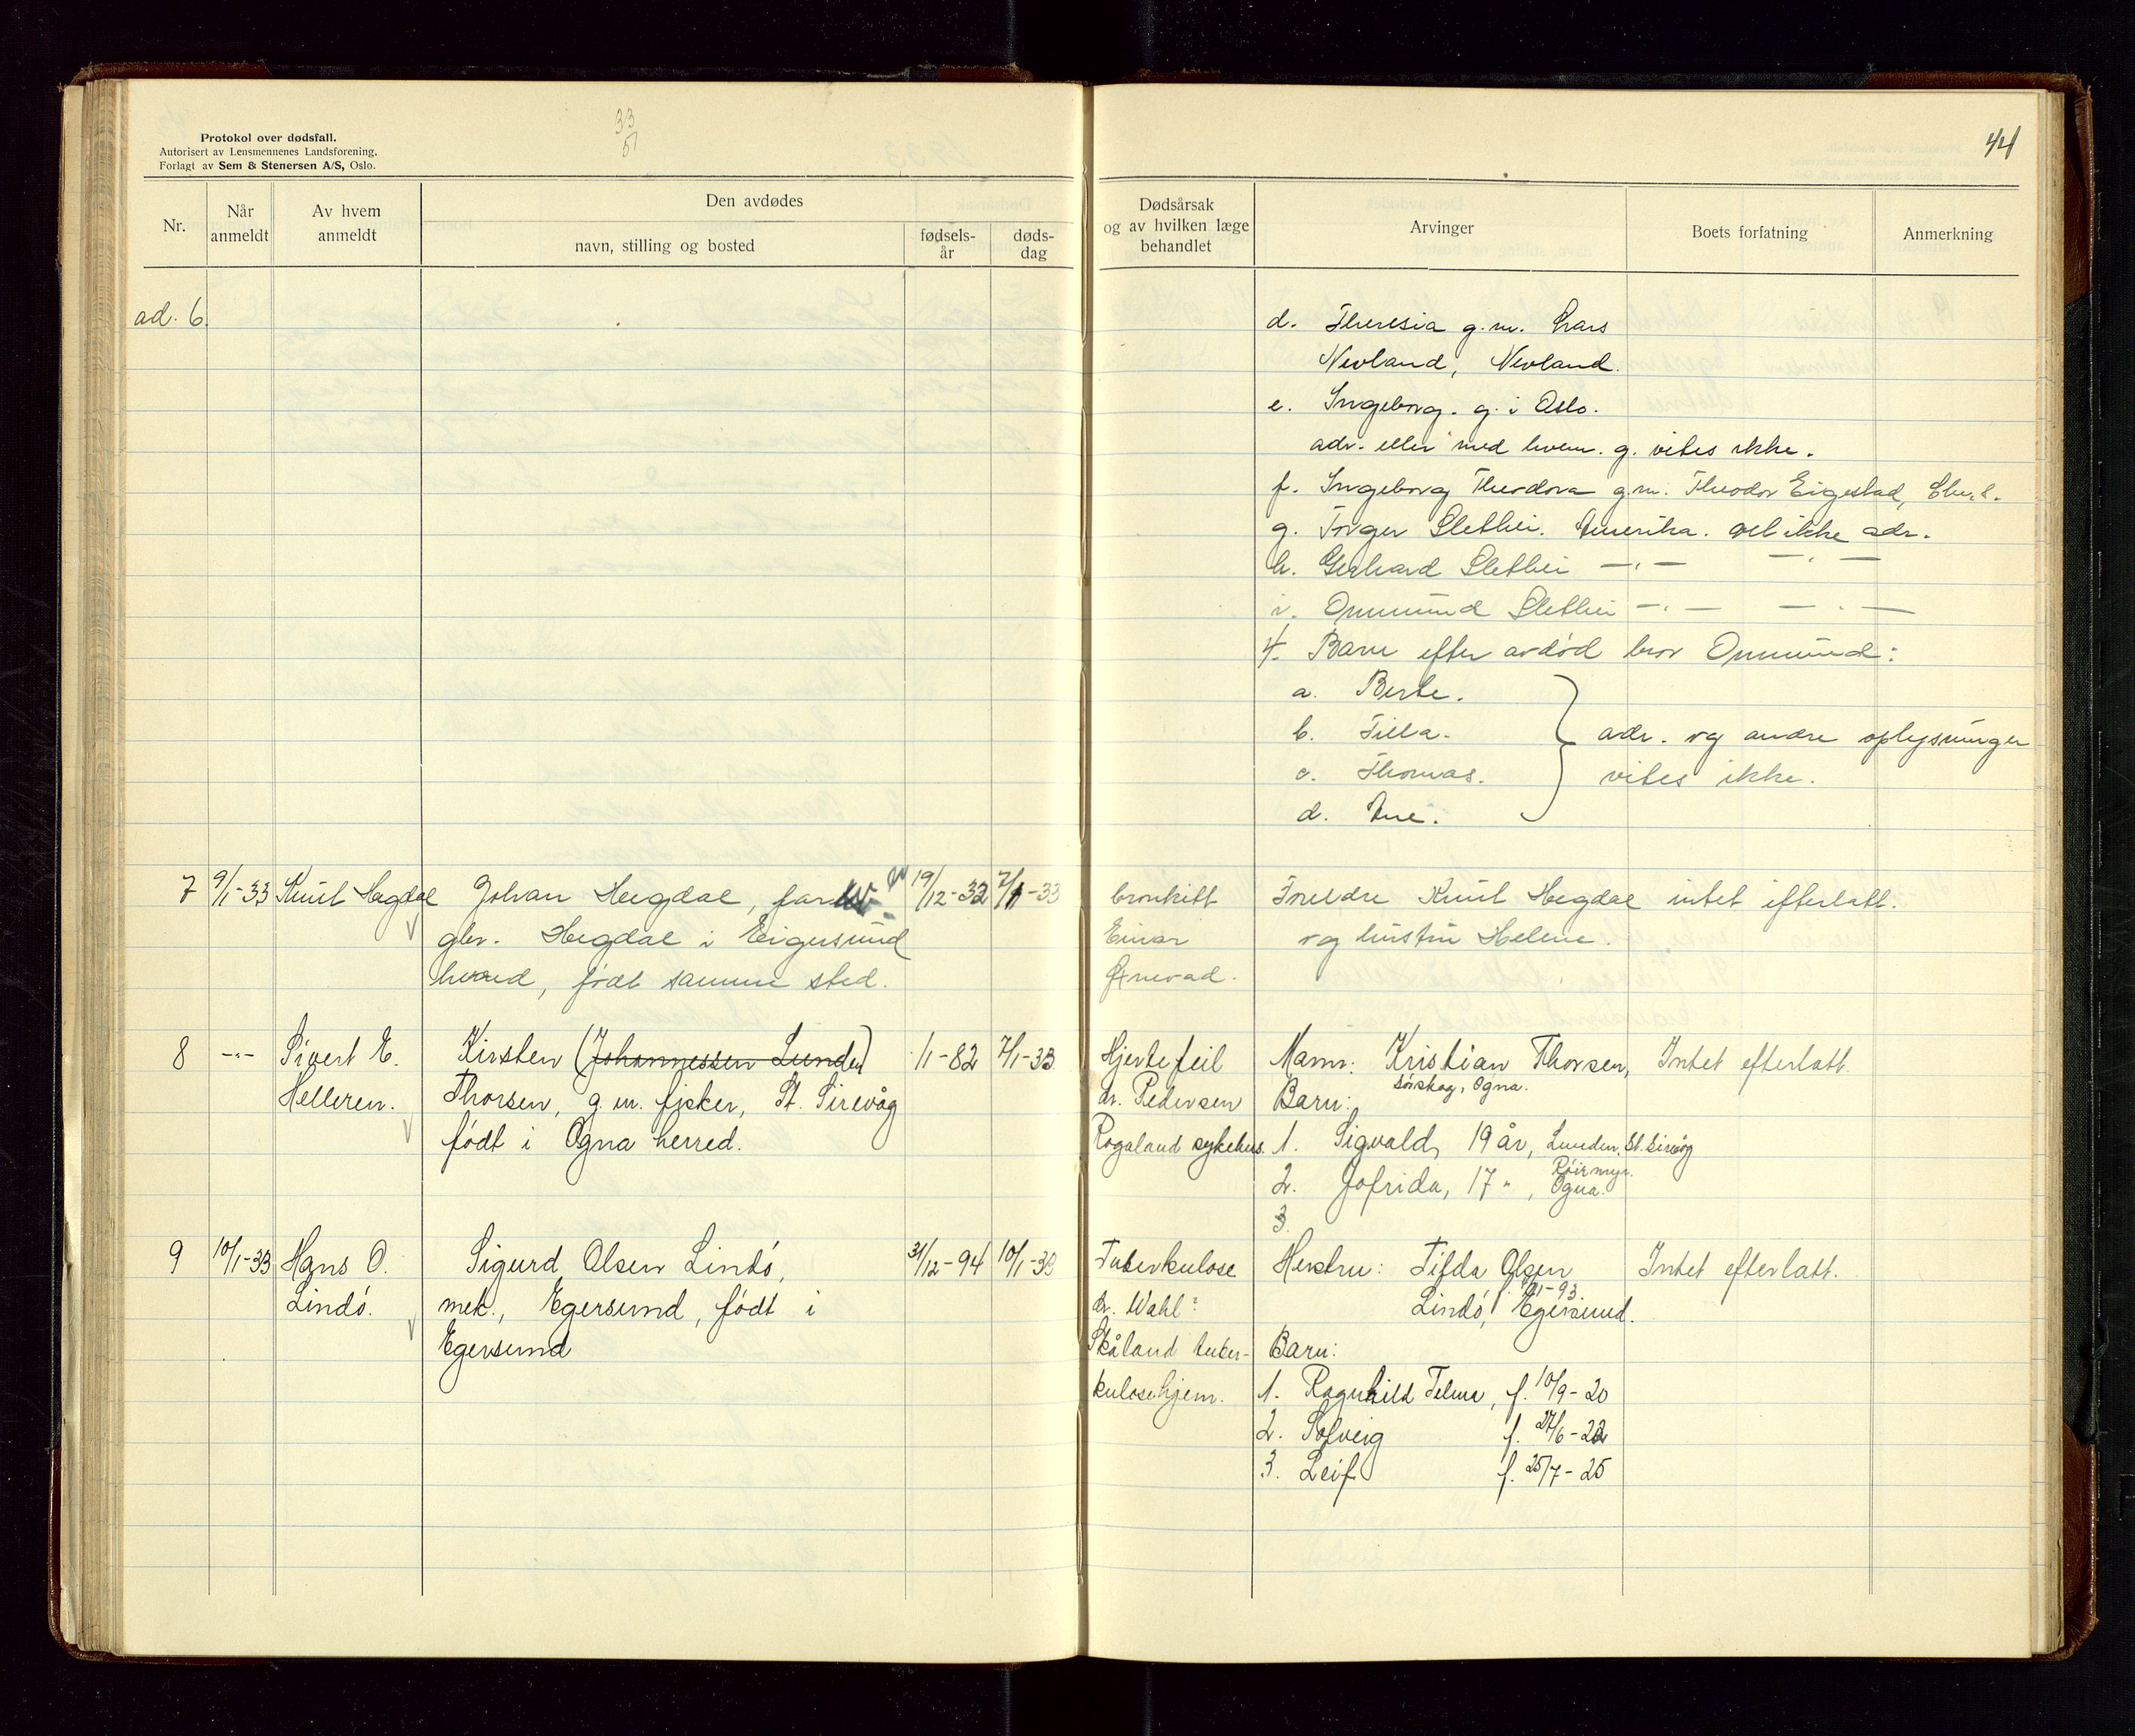 33
5
44
Protokol over dødsfall.
Autorisert av Lensmennenes Landsforening.
Forlagt av Sem & Stenersen A/S, Oslo.
Nr.
Når anmeldt
Av hvem anmeldt
Den avdødes
navn, stilling og bosted
fødsels-år
døds-dag
Dødsårsak og av hvilken læge behandlet
Arvinger
Boets forfatning
Anmerkning
ad. 6.
d. Theresia g.m. Lars
Nevland, Nevland.
e. Ingeborg. g. i Oslo.
adr. eller med hvem. g. vites ikke.
f. Ingeborg Theodora g.m. Theodor Eigestad,
g. Torger Slethei. Amerika. vet ikke adr.
h. Gerhard Slethei —"— —"—
i. Ommund Slethei —"— —"—
4. Barn efter avdød bror Ommund:
a. Berte.
b. Tilla. } adr. og andre oplysninger
c. Thomas. vites ikke.
d. Ane.
7 9/1-33 Knut Hegdal Johan Hegdal, 19/12-32 7/1-33 bronkitt Foreldre Knut Hegdal intet efterlatt.
gbr. Hegdal i Eigersund Einar og hustru Helene.
herred, født samme sted. Årrevad.
8 -"- Sivert E. Kirsten (Johannessen Lunden) 1/1-82 7/1-33 Hjertefeil Mann: Kristian Thorsen, Intet efterlatt.
Sørskog, Ogna.
Helleren. Thorsen, g.m. fisker, St. Sirevåg dr. Pedersen Barn:
født i Ogna herred. Rogaland sykehus. 1. Sigvald, 19 år, Lunden, St. Sirevåg
2. Jofrida, 17 ", Røirmyr. Ogna.
3.
9 10/1-33 Hans O. Sigurd Olsen Lindø, 31/12-94 10/1-33 Tuberkulose Hustru: Tilda Olsen Intet efterlatt.
Lindø. mek., Egersund, født i dr. Wahl: Lindø, Egersund.
Egersund Skåland tuber- Barn:
kulosehjem. 1. Ragnhild Telma, f. 10/9-20
2. Solveig f. 27/6-22
3. Leif f. 25/7-25